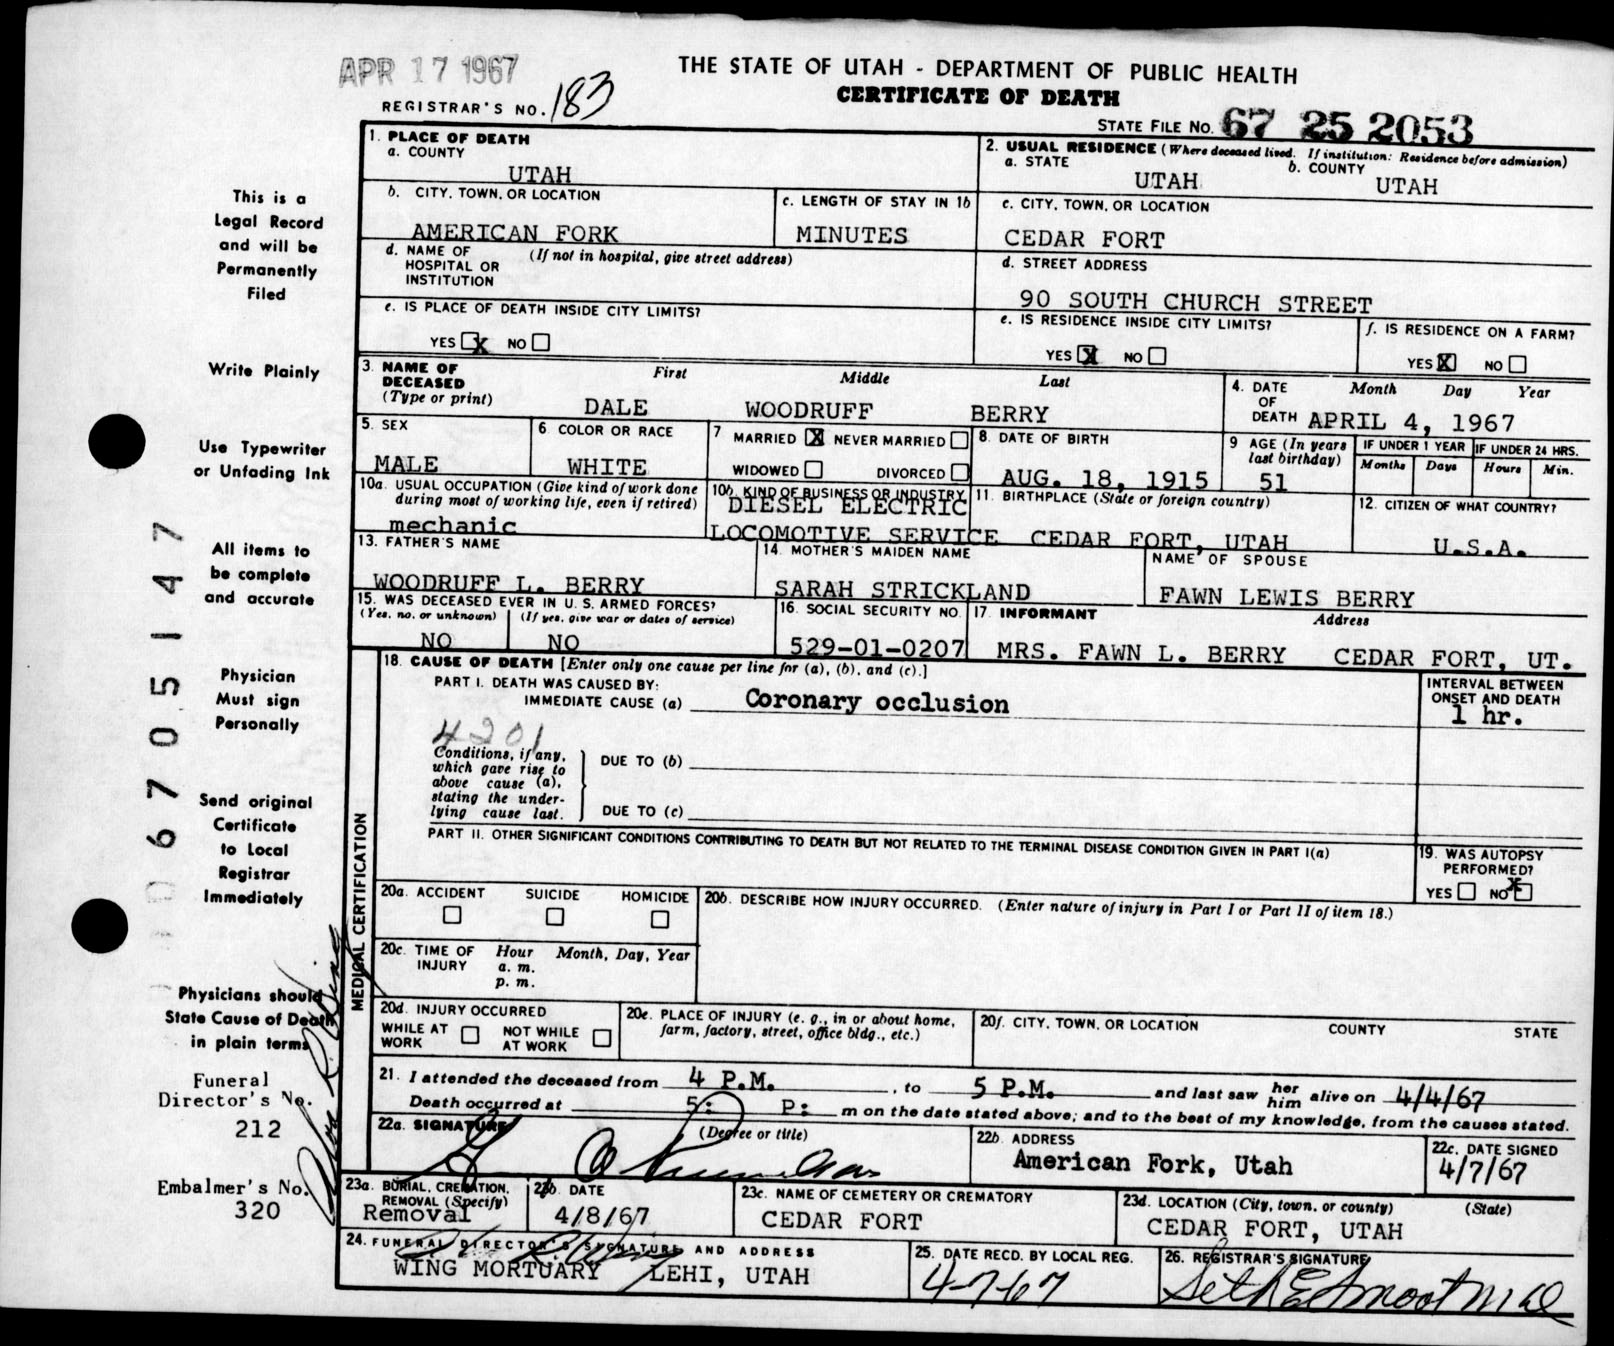 APR 17 1967
THE STATE OF UTAH - DEPARTMENT OF PUBLIC HEALTH
CERTIFICATE OF DEATH
REGISTRAR'S NO. 183
STATE FILE NO. 67 25 2053
This is a
Legal Record
and will be
Permanently
Filed
Write Plainly
Use Typewriter
or Unfading Ink
All items to
be complete
and accurate
Physician
Must sign
Personally
Send original
Certificate
to Local
Registrar
Immediately
Physicians should
State Cause of Death
in plain terms
Funeral
Director's No.
212
Embalmer's No.
320
067051147
1. PLACE OF DEATH
a. COUNTY
UTAH
2. USUAL RESIDENCE (Where deceased lived. If institution: Residence before admission)
a. STATE
UTAH
b. COUNTY
UTAH
b. CITY, TOWN, OR LOCATION
AMERICAN FORK
c. LENGTH OF STAY IN 1b
MINUTES
c. CITY, TOWN, OR LOCATION
CEDAR FORT
d. NAME OF HOSPITAL OR INSTITUTION
(If not in hospital, give street address)
d. STREET ADDRESS
90 SOUTH CHURCH STREET
e. IS PLACE OF DEATH INSIDE CITY LIMITS?
YES X NO
e. IS RESIDENCE INSIDE CITY LIMITS?
YES X NO
f. IS RESIDENCE ON A FARM?
YES X NO
3. NAME OF DECEASED
(Type or print)
First Middle Last
DALE WOODRUFF BERRY
4. DATE OF DEATH
Month Day Year
APRIL 4, 1967
5. SEX
MALE
6 COLOR OR RACE
WHITE
7 MARRIED X NEVER MARRIED
WIDOWED DIVORCED
8. DATE OF BIRTH
AUG. 18, 1915
9 AGE (In years last birthday)
51
IF UNDER 1 YEAR
Months Days
IF UNDER 24 HRS.
Hours Min.
10a. USUAL OCCUPATION (Give kind of work done
during most of working life, even if retired)
mechanic
10b. KIND OF BUSINESS OR INDUSTRY
DIESEL ELECTRIC
LOCOMOTIVE SERVICE
11. BIRTHPLACE (State or foreign country)
CEDAR FORT, UTAH
12. CITIZEN OF WHAT COUNTRY?
U.S.A.
13. FATHER'S NAME
WOODRUFF L. BERRY
14. MOTHER'S MAIDEN NAME
SARAH STRICKLAND
NAME OF SPOUSE
FAWN LEWIS BERRY
15. WAS DECEASED EVER IN U. S. ARMED FORCES?
(Yes, no, or unknown) (If yes, give war or dates of service)
NO NO
16. SOCIAL SECURITY NO.
529-01-0207
17. INFORMANT Address
MRS. FAWN L. BERRY CEDAR FORT, UT.
MEDICAL CERTIFICATION
18. CAUSE OF DEATH [Enter only one cause per line for (a), (b), and (c).]
PART I. DEATH WAS CAUSED BY:
IMMEDIATE CAUSE (a) Coronary occlusion
INTERVAL BETWEEN
ONSET AND DEATH
1 hr.
4201
Conditions, if any,
which gave rise to
above cause (a),
stating the under-
lying cause last.
DUE TO (b)
DUE TO (c)
PART II. OTHER SIGNIFICANT CONDITIONS CONTRIBUTING TO DEATH BUT NOT RELATED TO THE TERMINAL DISEASE CONDITION GIVEN IN PART I(a)
19. WAS AUTOPSY
PERFORMED?
YES NO X
20a. ACCIDENT SUICIDE HOMICIDE
20b. DESCRIBE HOW INJURY OCCURRED. (Enter nature of injury in Part I or Part II of item 18.)
20c. TIME OF INJURY
Hour Month, Day, Year
a. m.
p. m.
20d. INJURY OCCURRED
WHILE AT WORK NOT WHILE AT WORK
20e. PLACE OF INJURY (e. g., in or about home,
farm, factory, street, office bldg., etc.)
20f. CITY, TOWN, OR LOCATION COUNTY STATE
21. I attended the deceased from 4 P.M. , to 5 P.M. and last saw her him alive on 4/4/67
Death occurred at 5: P: m on the date stated above; and to the best of my knowledge, from the causes stated.
22a. SIGNATURE (Degree or title)
22b. ADDRESS
American Fork, Utah
22c. DATE SIGNED
4/7/67
23a. BURIAL, CREMATION,
REMOVAL (Specify)
Removal
23b. DATE
4/8/67
23c. NAME OF CEMETERY OR CREMATORY
CEDAR FORT
23d. LOCATION (City, town, or county) (State)
CEDAR FORT, UTAH
24. FUNERAL DIRECTOR'S SIGNATURE AND ADDRESS
WING MORTUARY LEHI, UTAH
25. DATE RECD. BY LOCAL REG.
4-7-67
26. REGISTRAR'S SIGNATURE
Seth E Smoot M D